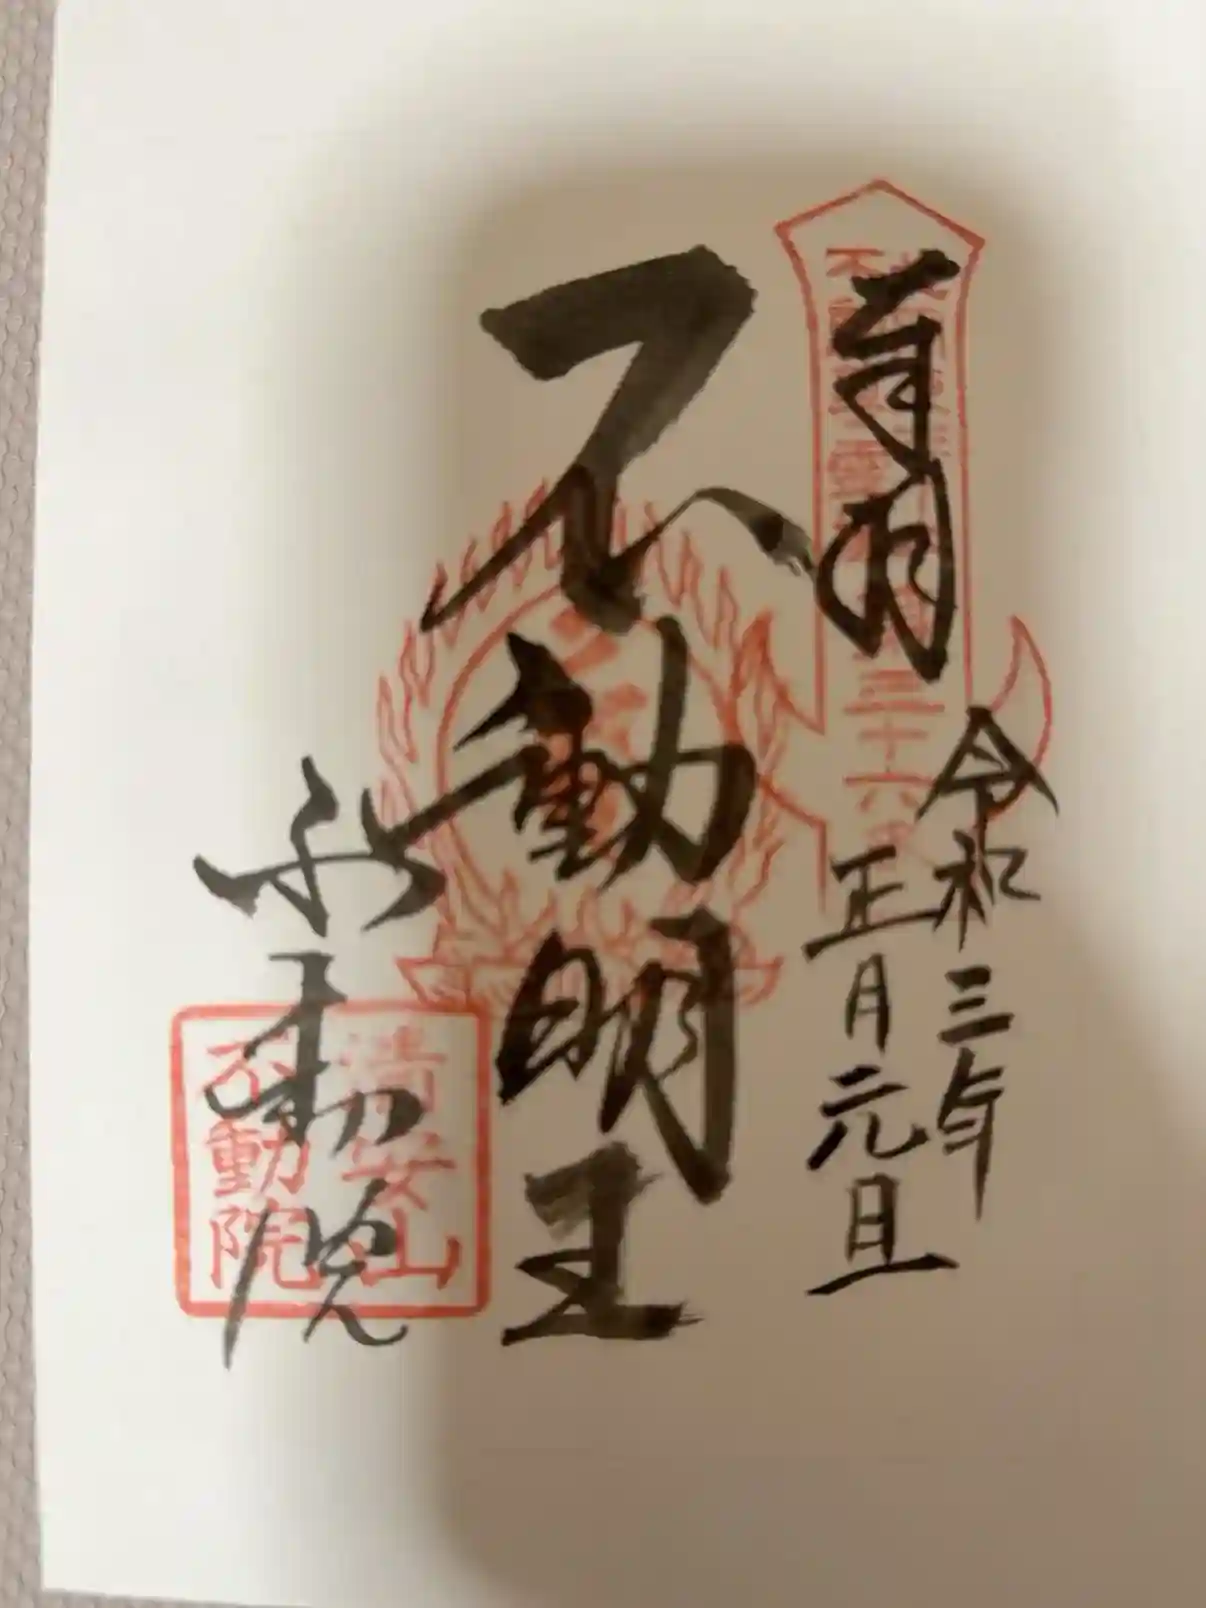 奉拝
令和三年
正月元旦
三十六
不動明王
不動院
清安山
不動院